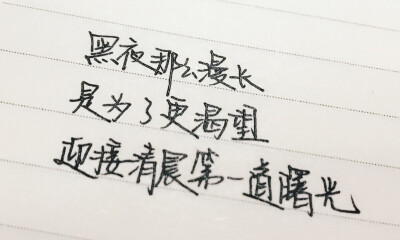 黑夜那么漫长
是为了更渴望
迎接清晨第一道曙光